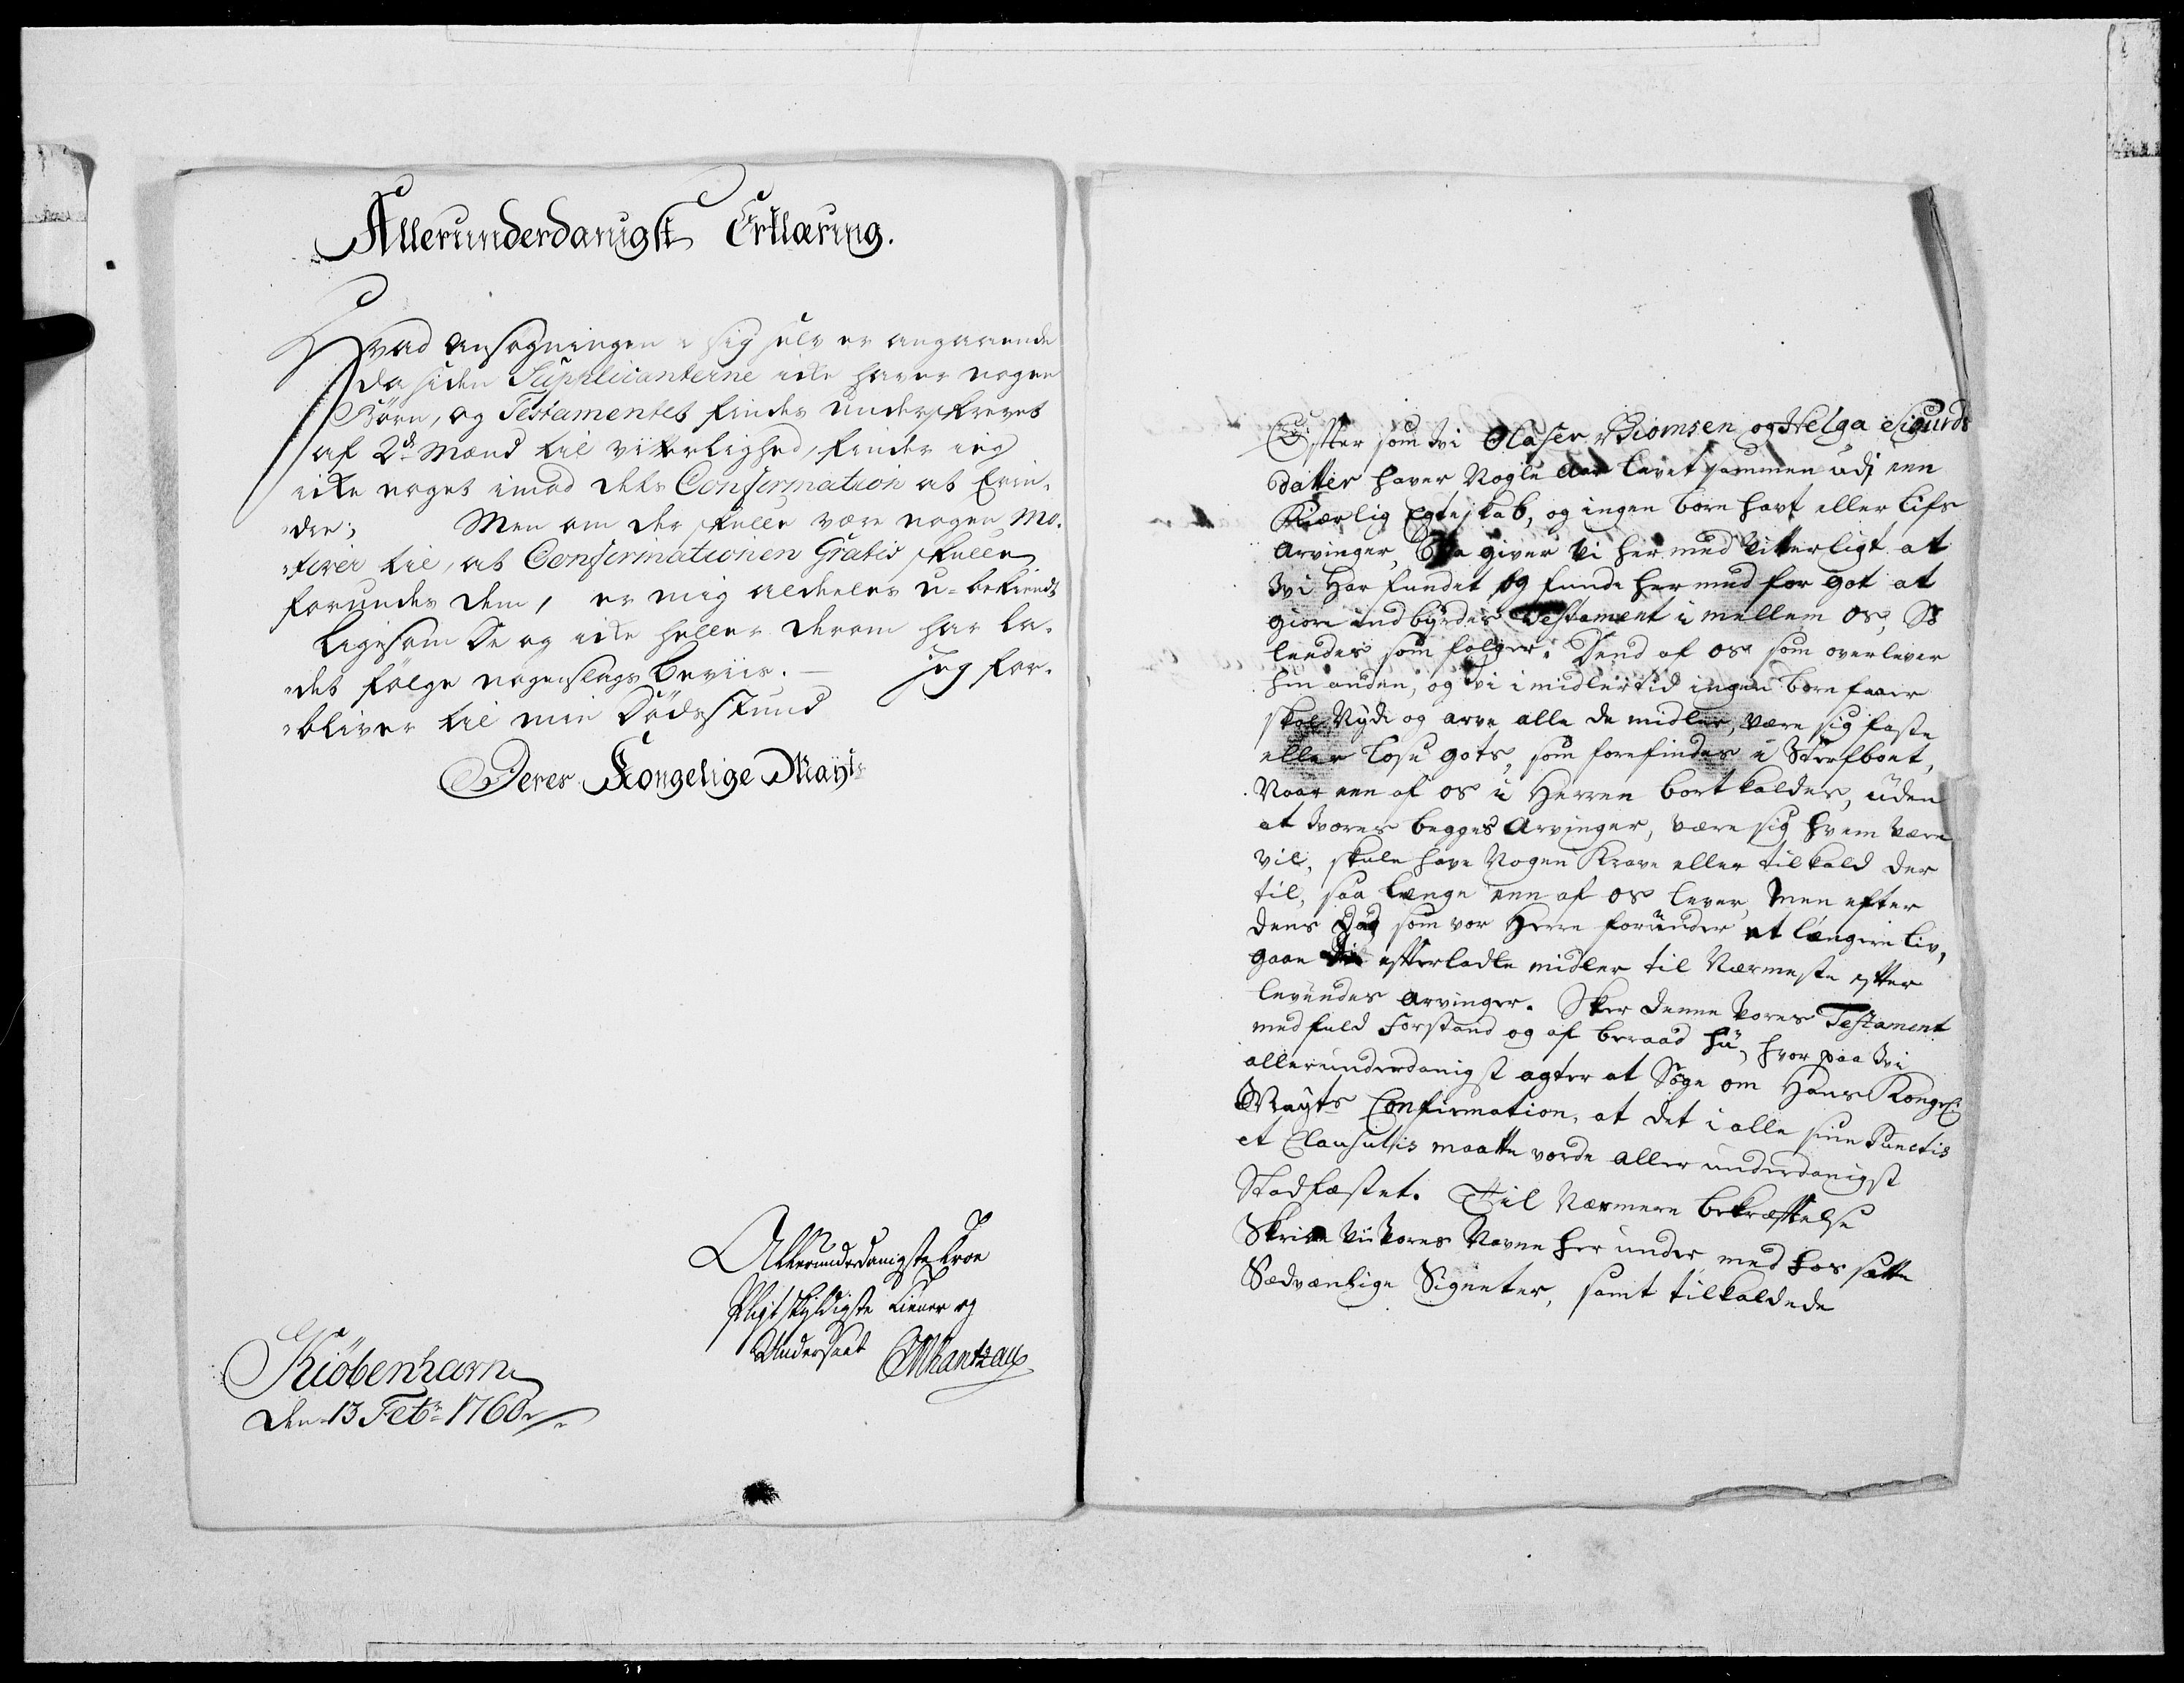 Allerunderdanigst Erklæring.
Hvad Ansøgningen i sig selv er angaaende
da siden Supplicanterne icke haver nogen
Börn, og Testamentet findes underskrevet
af 2de Mænd til vitterlighed, finder ieg
icke noget imod dets Confirmation at Erin-
dre; Men om der skulle være nogen Mo-
tiver til, at Confirmationen Gratis skulle
forundes dem, er mig aldeeles u-bekiendt
ligesom De og icke heller derom har la-
det følge nogenslags beviis. — jeg for-
bliver til min Dödsstund
Deres Kongelige Mayts
Allerunderdanigste troe
Pligtskyldigste tiener og
Undersaat CMRantzau
Kiöbenhavn
den 13 Febr 1760
Efter som Wi Olafer Biornsen og Helga Sigurds
datter haver Nogle Aar levet sammen udi een
Kierlig Egteskab, og ingen børn havt eller lifs
Arvinger, Saa giver Vi her med Vitterligt at
Wi Har fundet og funde hermed for got at
giøre indbyrdes Testament i mellem os, Så
leedes som følger. Dend af os som overlever
hin anden, og Wi imidlertid ingen børn faaer
skal Nyde og arve alle de midler, være sig faste
eller løse gots, som forefindes i Stærfboet,
Naar een af os i Herren bortkaldes, uden
at Wores begges Arvinger, være sig hvem være
vil, skule have Nogen Krave eller tilkald der
til, saa længe een af os lever, Men efter
dens Død som vor Herre forunder et længere liv,
gaae de efterladte midler til Nærmeste efter
levendes arvinger. Skeer denne Vores Testament
med fuld Forstand og af beraad hu, hvor paa Wi
allerunderdanigst agter at Søge om Hans Kongel:
Mayts Confirmation, at det i alle sine Punctis
et Clausulis maatte vorde aller underdanigst
Stadfæstet. Til Nærmere bekræftelse
Skrive Vi Vores Navne her under, med hos satte
Sædvanlige Signeter, samt tilkaldede